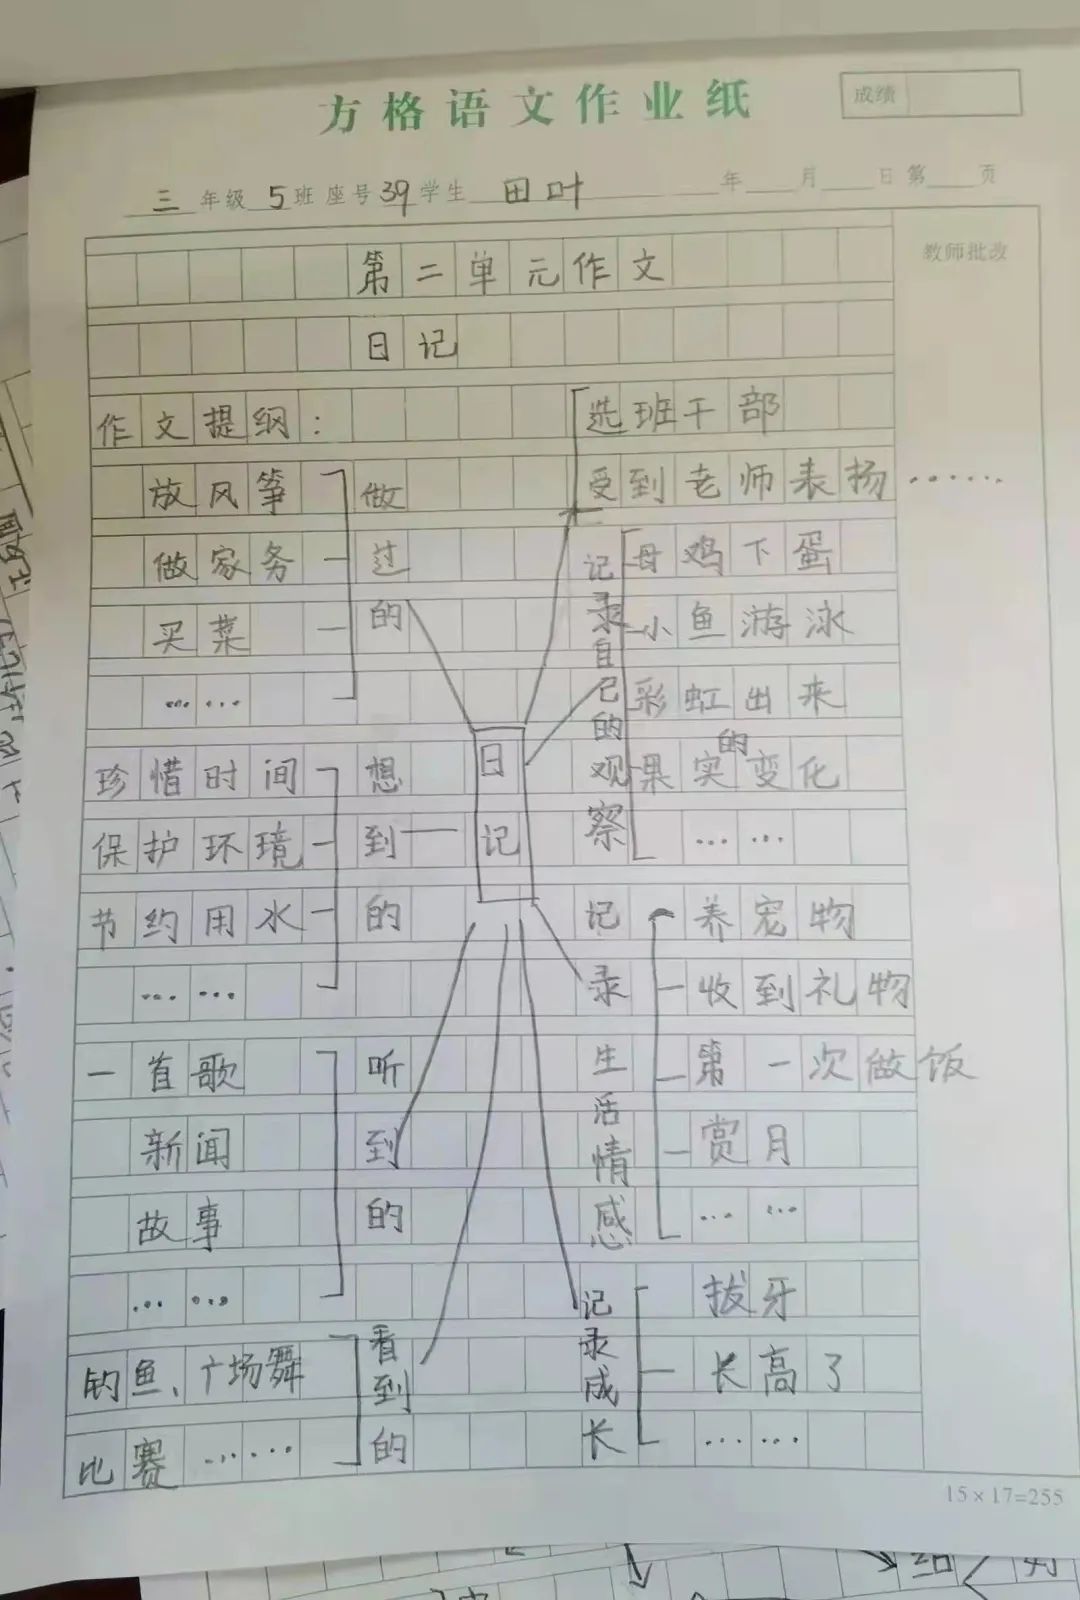 方格语文作业纸
成绩
三年级5班座号39学生田叶 年 月 日第 页
教师批改
第二单元作文
日记
作文提纲：
放风筝
做家务
买菜
……
做过的
珍惜时间
保护环境
节约用水
……
想到的
一首歌
新闻
故事
……
听到的
钓鱼、广场舞
比赛……
看到的
日记
选班干部
受到老师表扬……
记录自己的观察
母鸡下蛋
小鱼游泳
彩虹出来
果实的变化
……
记录生活情感
养宠物
收到礼物
第一次做饭
赏月
……
记录成长
拔牙
长高了
……
15×17=255